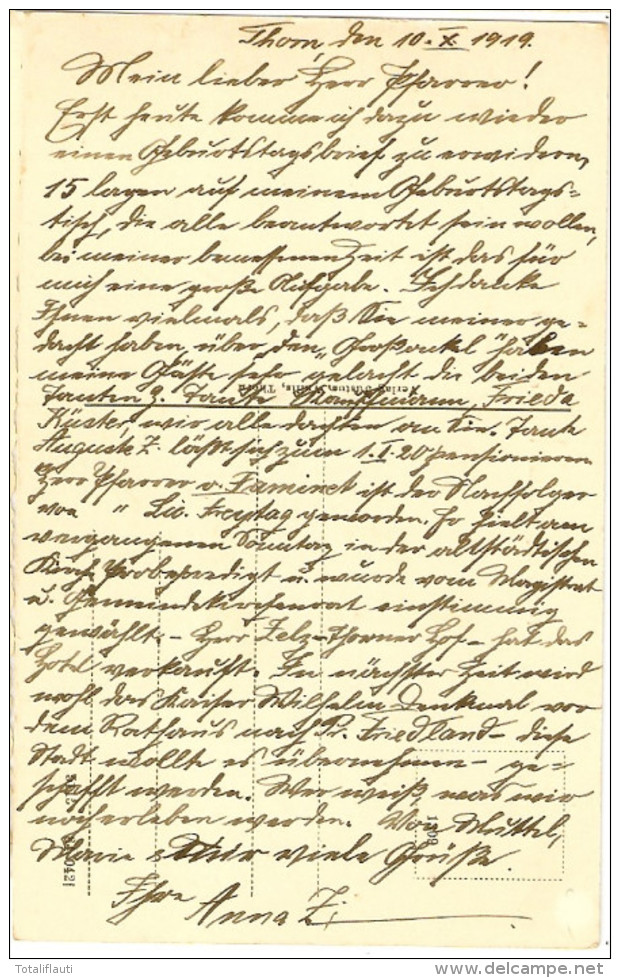 Thorn, den 10. X. 1919.
Mein lieber Herr Pfarrer!
Erst heute komme ich dazu wieder
einen Geburtstagsbrief zu erwidern,
15 lagen auf meinem Geburtstags-
tisch, die alle beantwortet sein wollen,
bei meiner bemessenen Zeit ist das für
mich eine große Aufgabe. Ich danke
Ihnen vielmals, daß Sie meiner ge-
dacht haben, über den "Großonkel" haben
meine Gäste sehr gelacht die beiden
Verlag Justus Wallis, Thorn
Tanten Z. Tante Frieda
Küster, wir alle dachten an Sie. Tante
Auguste Z. läßt sich zum 1. I. 20 pensionieren.
Herr Pfarrer v. Faminet ist der Nachfolger
von " Lic. Freytag geworden. Er hielt am
vergangenen Sonntag in der altstädtischen
Kirche Probepredigt u. wurde vom Magistrat
u. Gemeindekirchenrat einstimmig
gewählt. – Herr Zelz – Thorner Hof – hat das
Hotel verkauft. In nächster Zeit wird
wohl das Kaiser Wilhelm Denkmal vor
dem Rathaus nach Pr. Friedland – diese
Stadt wollte es übernehmen – ge-
schafft werden. Wer weiß, was wir
noch erleben werden. Von Muttel,
Marie viele Grüße.
Ihre Anna Z.
Totaliflauti
www.delcampe.net